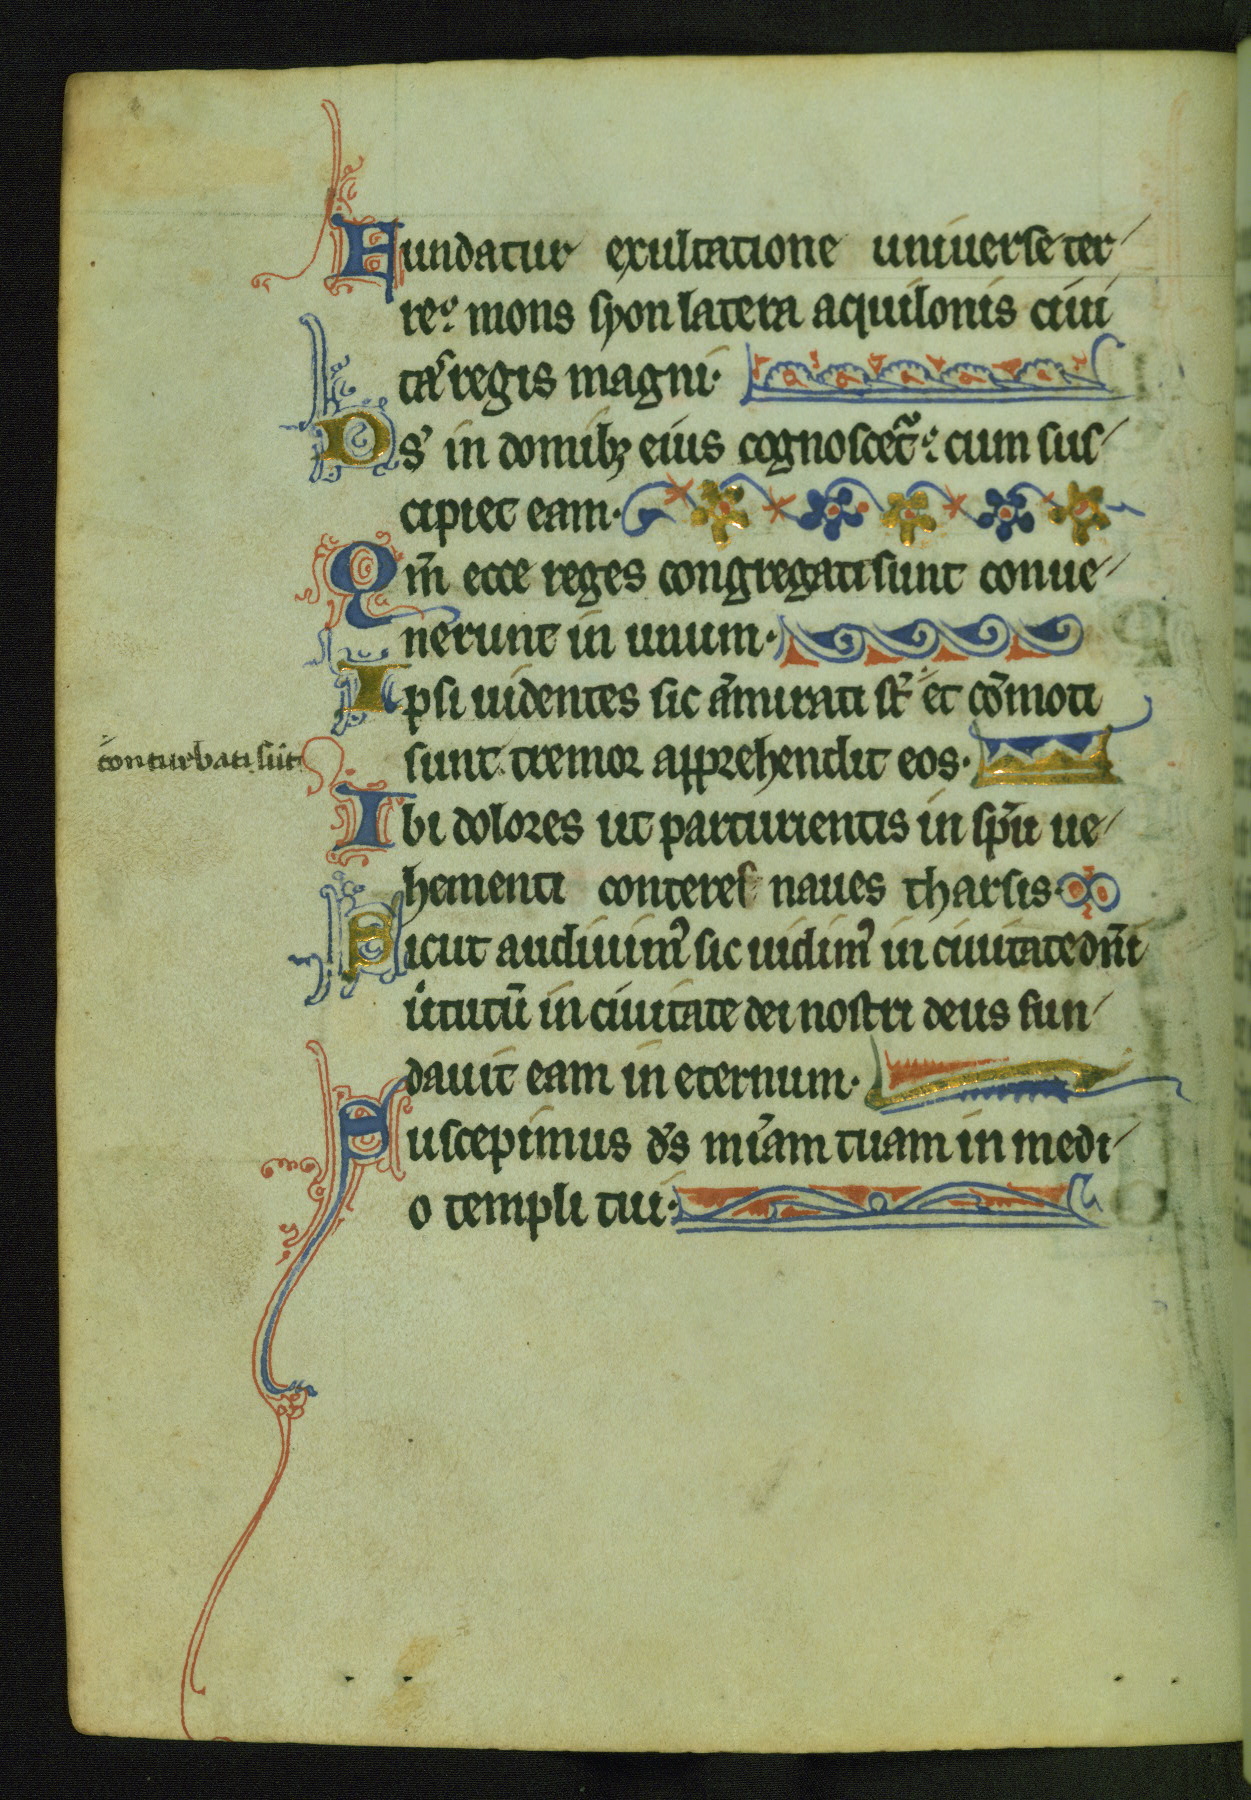 Fundatur exultatione uniuerse ter
re: mons syon latera aquilonis ciui
tas regis magni.
Ds in domibꝫ eius cognoscet᷑: cum sus
cipiet eam.
Qm̄ ecce reges congregati sunt conue
nerunt in unum.
Ipsi uidentes sic am̄irati st̄ et com̄oti
conturbati sūt
sunt tremor apprehendit eos.
Ibi dolores ut parturientis in spū ue
hementi conteres naues tharsis.
Sicut audiuimꝰ sic uidimꝰ in ciuitate dn̄i
uͥtutū in ciuitate dei nostri deus fun
dauit eam in eternum.
Suscepimus ds̄ mīam tuam in medi
o templi tui.